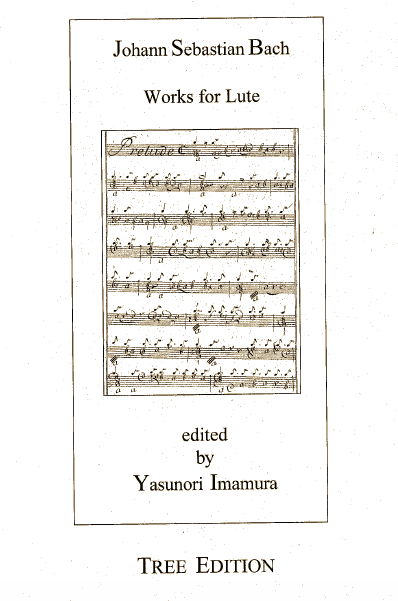 Johann Sebastian Bach
Works for Lute
Prelude
edited
by
Yasunori Imamura
TREE EDITION